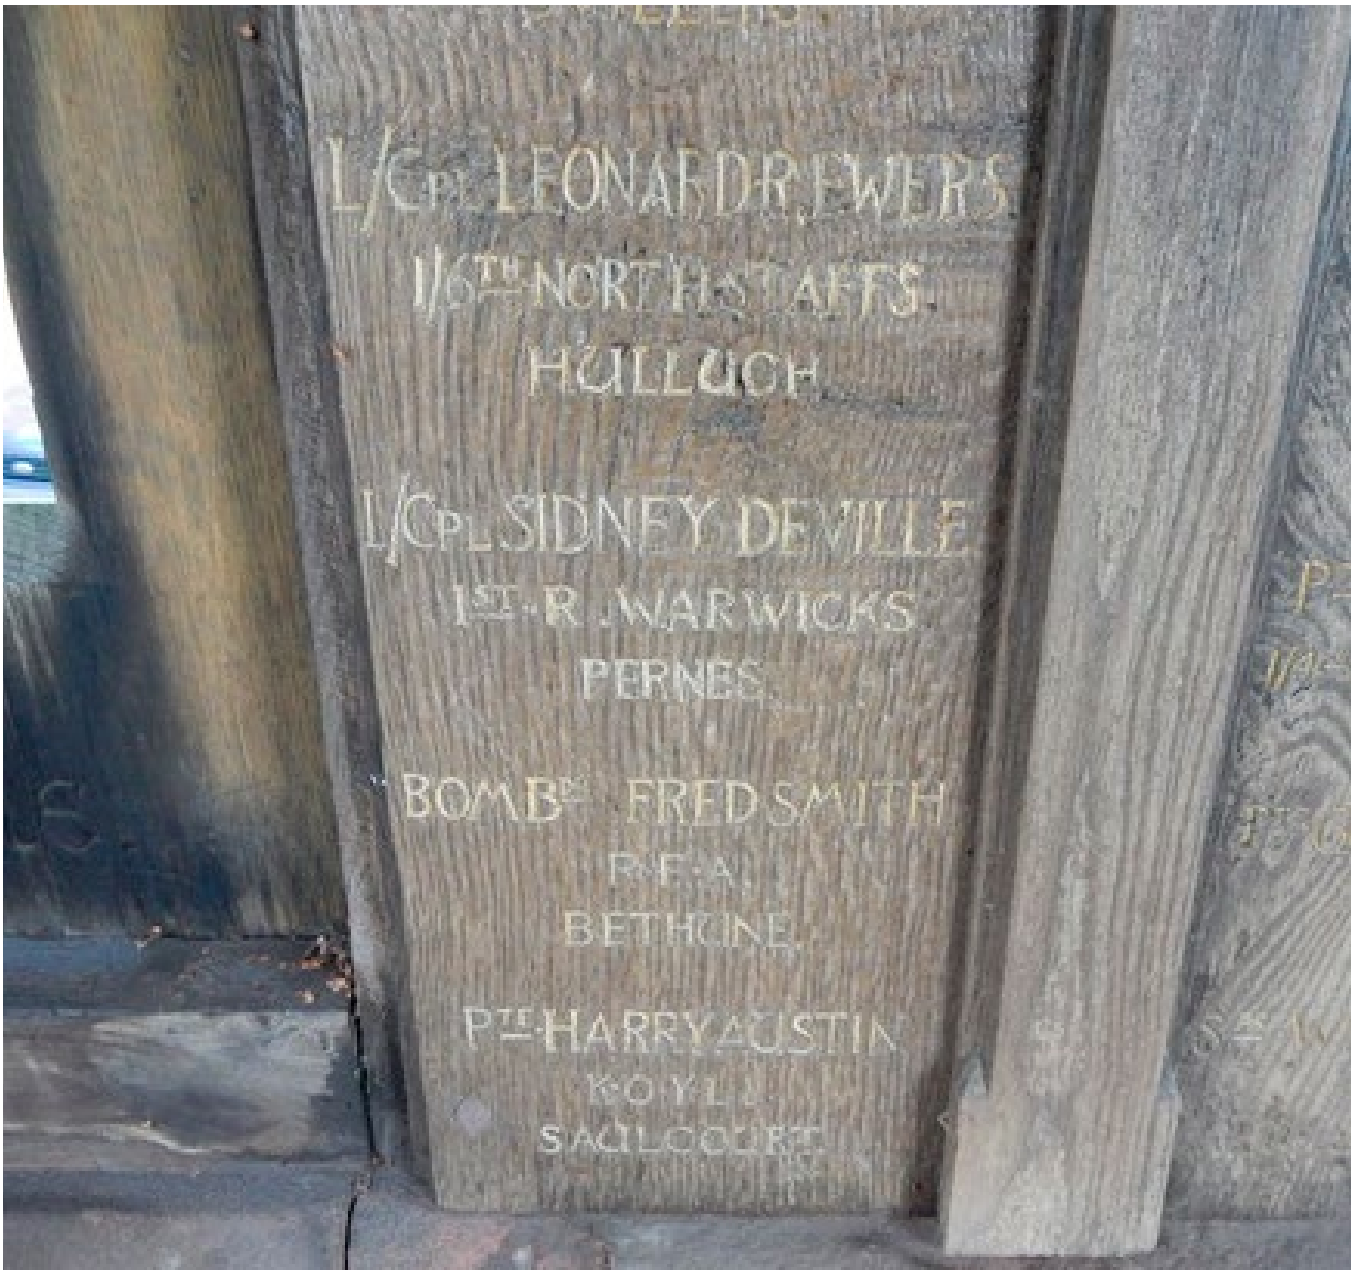 L/CPL LEONARD R. EWERS.
1/6TH NORTH STAFFS.
HULLUCH
L/CPL SIDNEY DEVILLE.
1ST R. WARWICKS
PERNES.
BOMBR FRED SMITH
R.F.A.
BETHUNE.
PTE HARRY AUSTIN
K.O.Y.L.I.
SAULCOURT